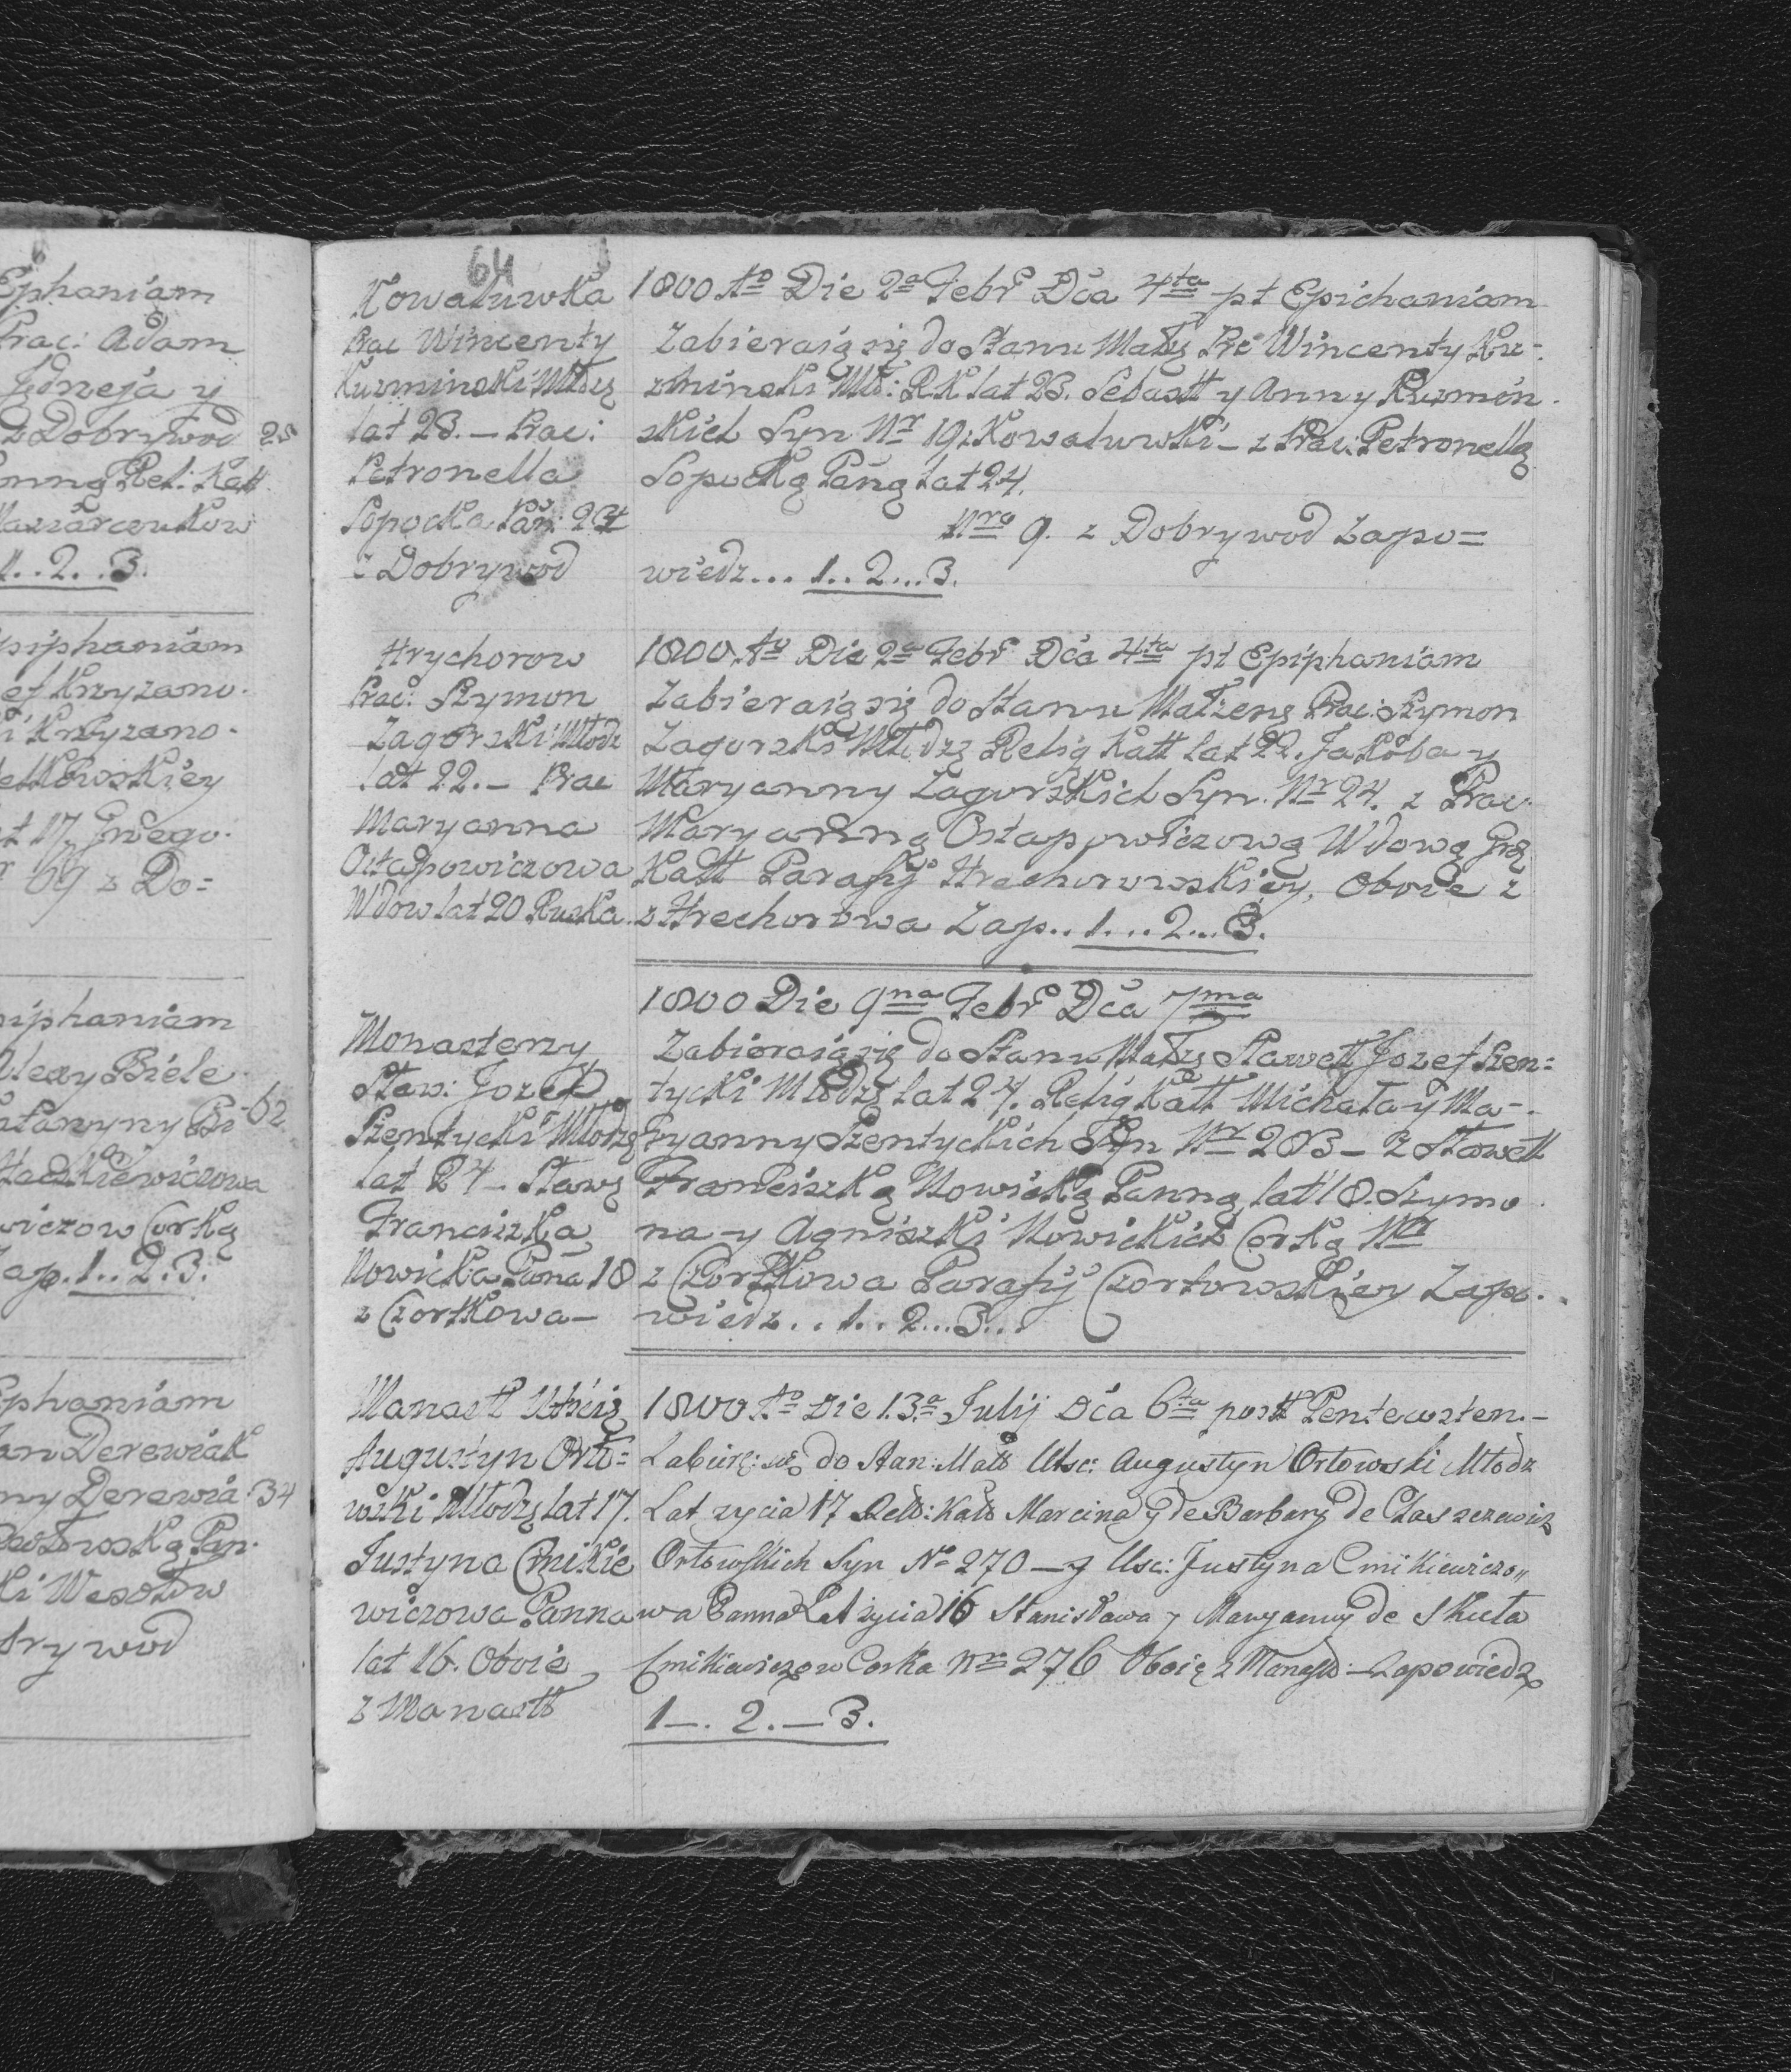 Ephaniam
Prac: Adam
Jędrzeja y
z Dobrywod 25
Panną Rel: Katt.
Nazarczukow
1..2..3.
Epiphaniam
Krzyzano.
Krzyzano.
lat 17.
69 z Do=
Epiphaniam
Biele
62
wiczow Corkę
Zap. 1..2.3.
Ephaniam
Jan Derewiak
Derewia 34
Pan.
Wesołow
brywod
64
Kowaluwka
Prac Wincenty
Kuzminski Młodz
lat 23. – Prac:
Petronella
Sopocka Pan: 24
z Dobrywod
1800 Ao Die 2a Febr Dca 4ta pt Epichaniam
Zabieraią się do Stanu Małz Prc Wincenty Ku-
zminski Mło: R.K lat 23. Sebastt y Anny Kuzmin-
skich Syn Nr 19: Kowaluwki – z Prac: Petronellą
Sopocką Paną lat 24.
Nro 9. z Dobrywod Zapo=
wiedz... 1..2...3.
Hrychorow
Prac: Szymon
Zagorski Młodz
lat 22. – Prac
Maryanna
Ostapowiczowa
Wdow lat 20 Ruska.
1800 Ao Die 2a Febr Dca 4ta pt Epiphaniam
Zabieraią się do Stanu Małzens Prac: Szymon
Zagurski Młodz Relig Katt lat 22. Jakoba y
Maryanny Zagurskich Syn. Nr 24. z Prac.
Maryanną Ostapowiczową Wdową
Katt Parafij Hrechorowskiey. Oboie z
z Hrechorowa Zap.. 1...2...3.
Monastery
Sław: Jozef
Szentycki Młodz
lat 24 – Sławz
Franciszka
Nowicka Pana 18
z Czortkowa –
1800 Die 9na Febr Dca 7ma
Zabieraią się do Stanu Małz Sławett Jozef Szen=
tycki Młodz lat 24. Relig Katt Michała y Ma-
ryanny Szentyckich Syn Nr 203 – z Sławett
Franciszką Nowicką Panną lat 18. Szymo
na y Agniszki Nowickich Corką Nr
z Czortkowa Parafij Czortowskiey Zapo.
wiedz.. 1..2...3...
Manastt Utsciz
Augustyn Orło=
wski Młodz lat 17.
Justyna Cmikie
wiczowa Panna
lat 16. Oboie
z Manastt
1800 Ao Die 13a Julij Dca 6ta postt Pentecosten.–
Zabier: się do Stan: Małż Utsc: Augustyn Orłowski Młodz
Lat zycia 17 Marcina y de Barbary de
Orłowskich Syn No 270 – z Usc: Justyna Cmikiewiczo„
wa Panna Lat życia 16 Stanisława y Maryanny de Skuta
Cmikiewiczow Corka Nro 276 Oboie z – Zapowiedz
1–. 2.–3.